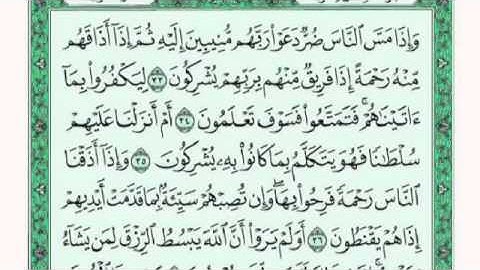 وَإِذَا مَسَّ ٱلنَّاسَ ضُرٌّ دَعَوْا۟ رَبَّهُم مُّنِيبِينَ إِلَيْهِ ثُمَّ إِذَآ أَذَاقَهُم
مِّنْهُ رَحْمَةً إِذَا فَرِيقٌ مِّنْهُم بِرَبِّهِمْ يُشْرِكُونَ ٣٣ لِيَكْفُرُوا۟ بِمَآ
ءَاتَيْنَٰهُمْ ۚ فَتَمَتَّعُوا۟ فَسَوْفَ تَعْلَمُونَ ٣٤ أَمْ أَنزَلْنَا عَلَيْهِمْ
سُلْطَٰنًا فَهُوَ يَتَكَلَّمُ بِمَا كَانُوا۟ بِهِۦ يُشْرِكُونَ ٣٥ وَإِذَآ أَذَقْنَا
ٱلنَّاسَ رَحْمَةً فَرِحُوا۟ بِهَا ۖ وَإِن تُصِبْهُمْ سَيِّئَةٌۢ بِمَا قَدَّمَتْ أَيْدِيهِمْ
إِذَا هُمْ يَقْنَطُونَ ٣٦ أَوَلَمْ يَرَوْا۟ أَنَّ ٱللَّهَ يَبْسُطُ ٱلرِّزْقَ لِمَن يَشَآءُ